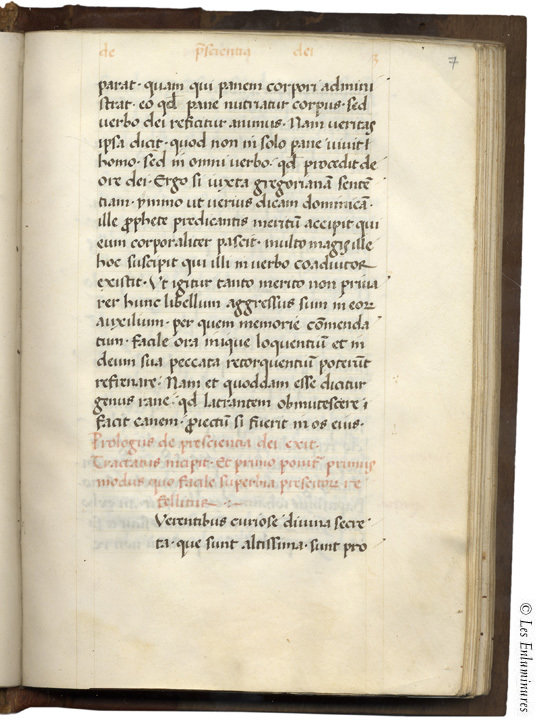 de p̄scientia dei 3
7
parat· quam qui panem corpori admini
strat· eo qd̄ pane nutriatur corpus· sed
verbo dei reficitur animus· Nam veritas
ipsa dicit· quod non in solo pane uiuit
homo· sed in omni uerbo· qd̄ procedit de
ore dei· Ergo si iuxta gregorianā sentē
tiam· ymmo ut uerius dicam dominicā·
ille prophete predicantis meritū accipit qui
eum corporaliter pascit· multo magis ille
hoc suscipit qui illi in uerbo coadiutor
existit· Ut igitur tanto merito non priua
rer hunc libellum aggressus sum in eor
auxilium· per quem memorie cōmenda
tum· facile ora inique loquentiū et in
deum sua peccata retorquentiū poterūt
refrenare· Nam et quoddam esse dicitur
genus rane· qd̄ latrantem obmutescere
facit canem· proiectū si fuerit in os eius·
Prologus de presciencia dei exit·
Tractatus incipit· Et primo ponit᷑ primus
modus quo facile superbia prescitor re
fellitur
Verentibus curiose diuina secre
ta· que sunt altissima· sunt pro
© Les Enluminures